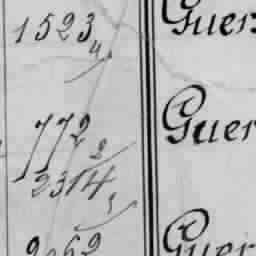 1523 Guer
4
772 Guer
2
2314
1
2062 Guer